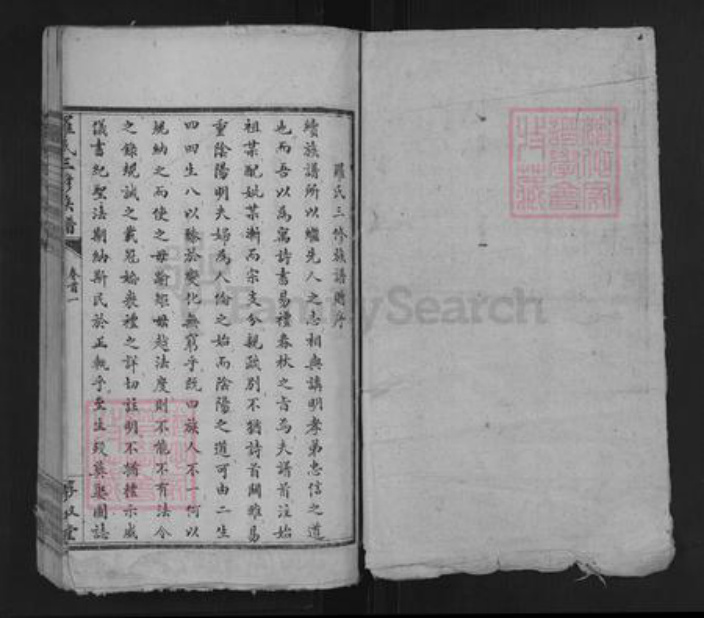 羅氏三修族譜贈序
續族譜所以繼先人之志相與講明孝弟忠信之道
也而吾以為寓詩書易禮春秋之旨焉夫譜首注始
祖某配妣某漸而宗支分親疎別不猶詩首關雎易
重陰陽明夫婦為人倫之始而陰陽之道可由二生
四四生八以臻於變化無窮乎既曰族人不一何以
規納之而使之毋踰矩毋越法度則不能不有法令
之錄規誡之載冠婚喪禮之詳切註明不猶禮示威
儀書紀聖法期納斯民於正軌乎至生歿葬與圖誌
羅氏三修族譜
卷首一
敦 堂
FamilySearch